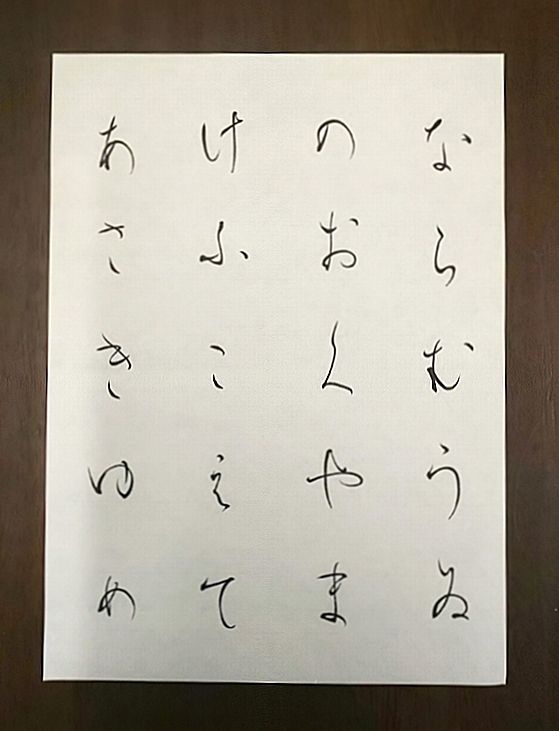 ならむうゐ
のおくやま
けふこえて
あさきゆめ